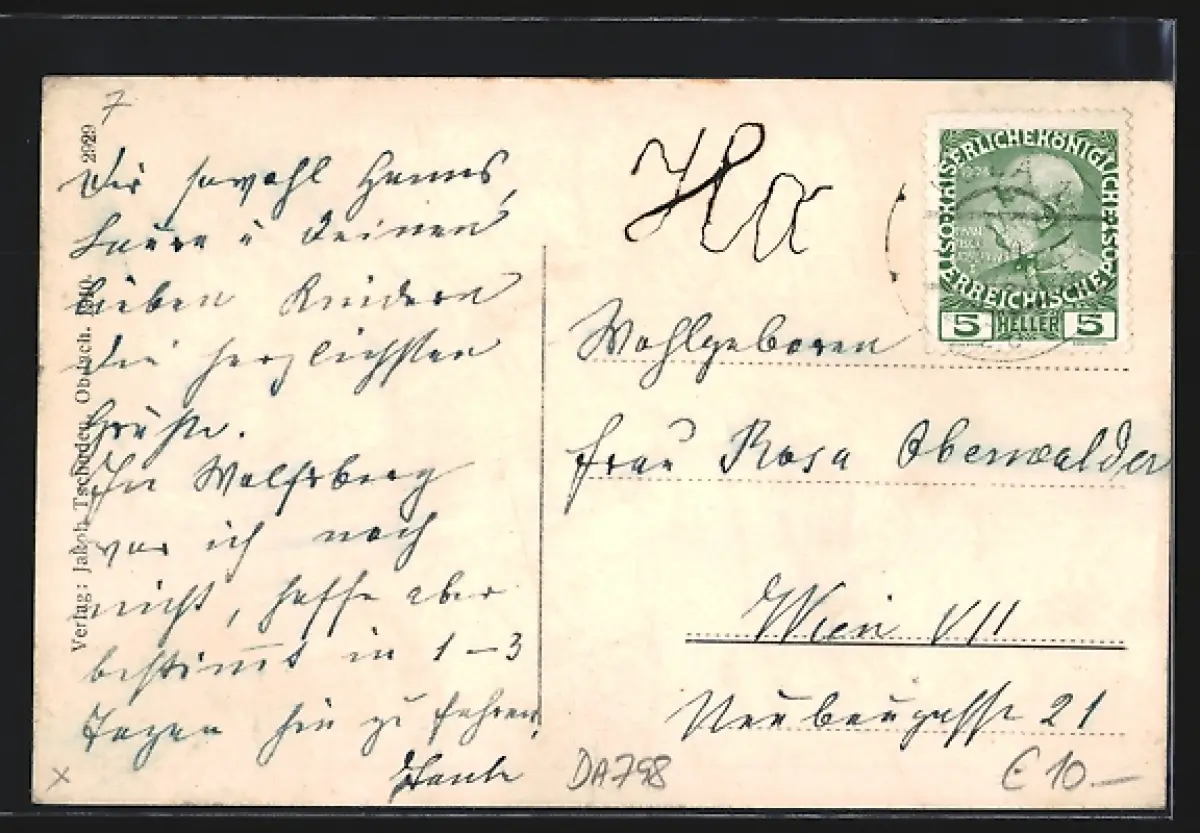 7
Verlag: Jakob Tscheden, Obdach. 1910. 2929
Dir sowohl Hanns,
Laura u Deinen
lieben Kindern
die herzlichsten
Grüße.
In Wolfsberg
war ich noch
nicht, hoffe aber
bestimmt in 1-3
Tagen hin zu fahren,
KAISERLICHE KÖNIGLICHE ÖSTERREICHISCHE POST
5 HELLER 5
Wohlgeboren
Frau Rosa Oberwalder
Wien VII
Neubaugasse 21
DA798
€ 10.-
x